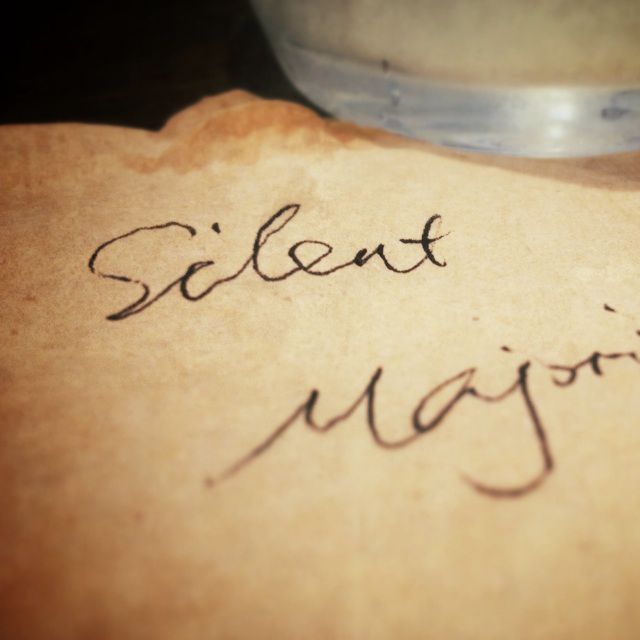 Silent
Majori